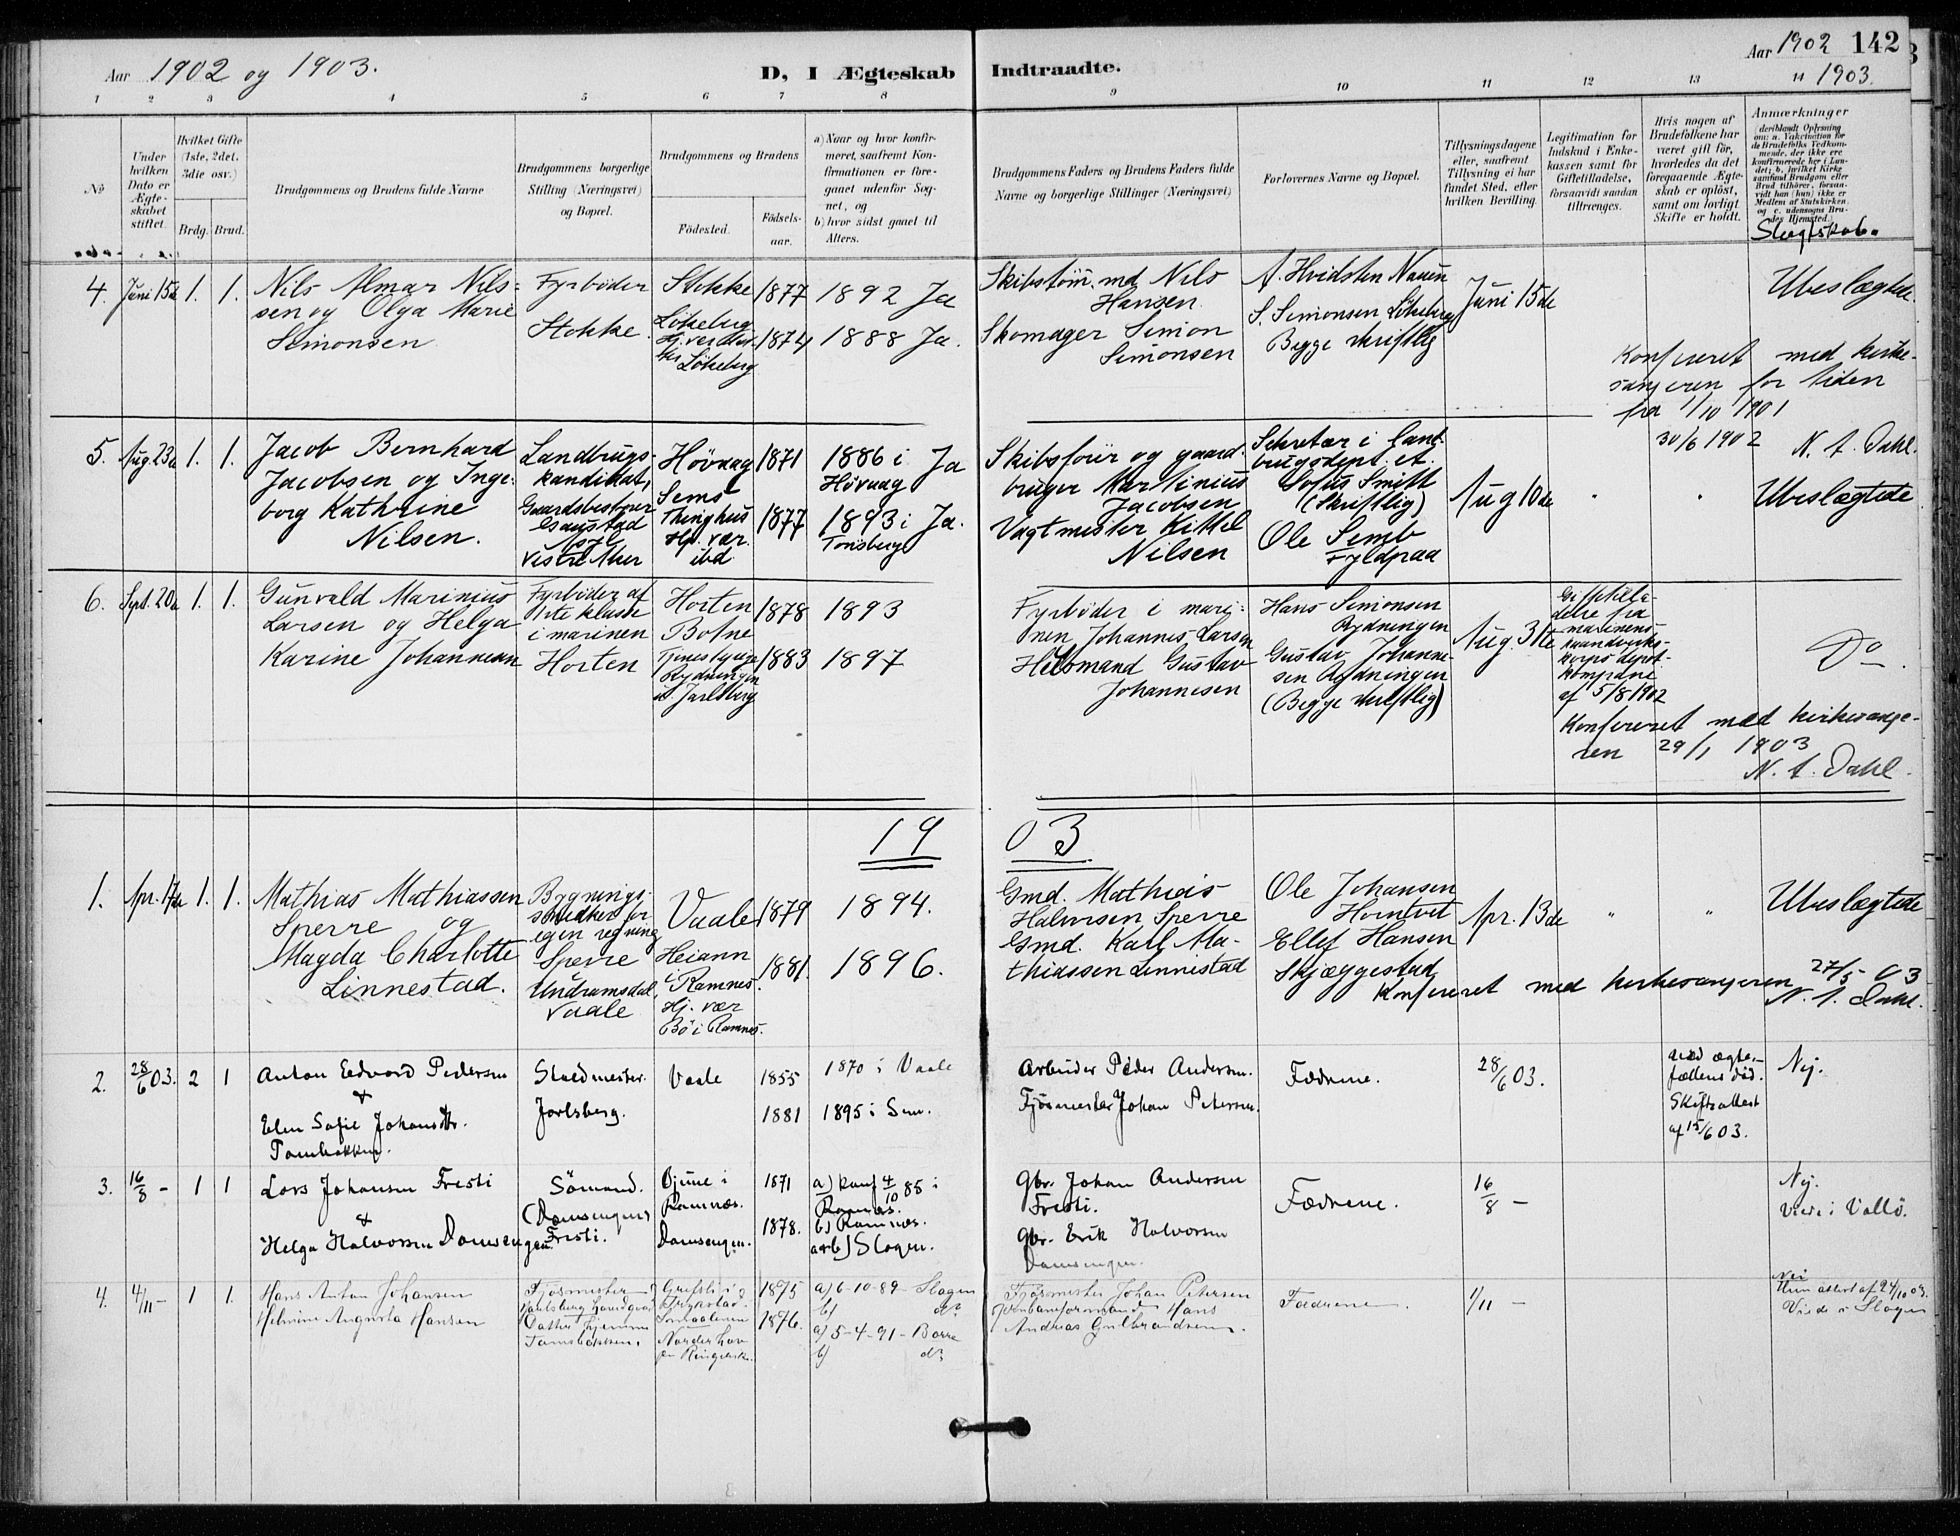 Aar 1902 og 1903.
D, I Ægteskab
Indtraadte.
Aar 1902
1903.
142
1 2 3 4 5 6 7 8
9 10 11 12 13 14
No
Under hvilken Dato er Ægteskabet stiftet.
Hvilket Gifte (1ste, 2det, 3die osv.)
Brdg. Brud.
Brudgommens og Brudens fulde Navne
Brudgommens borgerlige Stilling (Næringsvei) og Bopæl.
Brudgommens og Brudens
Födested.
Födsels-aar.
a) Naar og hvor konfirmeret, saafremt Konfirmationen er foregaaet udenfor Sognet, og
b) hvor sidst gaaet til Alters.
Brudgommens Faders og Brudens Faders fulde
Navne og borgerlige Stillinger (Næringsvei)
Forlovernes Navne og Bopæl.
Tillysningsdagene eller, saafremt Tillysning ei har fundet Sted, efter hvilken Bevilling.
Legitimation for Indskud i Enkekassen samt for Giftetilladelse, forsaavidt saadan tiltrænges.
Hvis nogen af Brudefolkene har været gift för, hvorledes da det foregaaende Ægteskab er oplöst, samt om lovligt Skifte er holdt.
Anmærkninger
(deriblandt Oplysning om: a. Vakcination for de Brudefolks Vedkommende, der ikke ere konfirmerede her i Landet; b. hvilket Kirkesamfund Brudgom eller Brud tilhører, forsaavidt han (hun) ikke er Medlem af Statskirken, og c. udensogns Brudes Hjemsted.)
Slægtskab.
4. Juni 15de 1. 1.
Nils Almar Nils-
sen og Olga Marie
Simonsen
Fyrböder
Stokke.
Stokke 1877 1892 Ja
Lökeberg
Lökeberg 1874 1888 Ja.
Skibstöm.md Nils
Hansen.
Skomager Simon
Simonsen
A. Hvidsten Nauen
S. Simonsen Lökeberg
Begge skriftlig
Juni 15de
Ubeslægtede
Konfereret med kirke-
sangeren for tiden
fra 1/10 1901
30/6 1902 N. A. Dahl.
5. Aug. 23de 1. 1.
Jacob Bernhard
Jacobsen og Inge-
borg Kathrine
Nilsen.
Landbrugs-
kandidat,
Gaardsbestyrer
Gaustad
Asyl
Vestre Aker
Hövaag 1871 1886 i Ja
Hövaag
Sems
Thinghus 1877 1893 i Ja.
Hj. vær. Tönsberg
ibd
Skibsförer og gaard-
bruger Martinius
Jacobsen
Vagtmester Kittil
Nilsen
Sekretær i land-
brugsdept.et.
Sofus Smitt
(Skriftlig)
Ole Semb
Fyldpaa
Aug 10de
Ubeslægtede
6. Sept. 20de 1. 1.
Gunvald Marinius
Larsen og Helga
Karine Johannesen
Fyrböder af
1ste klasse
i marinen
Horten
Horten 1878 1893
Botne
1883 1897
Rydningen
Jarlsberg
Fyrböder i mari-
nen Johannes Larsen
Helsmand Gustav
Johannesen
Hans Simonsen
Rydningen
Gustav Johanne-
sen Rydningen
(Begge skriftlig)
Aug 31te
Giftetilla-
delse fra
marinens
haandverks-
korps depot-
kompani
af 5/8 1902
Do
Konfereret med kirkesange-
ren 29/1 1903
N. A. Dahl.
19 03
1. Apr. 17de 1. 1.
Mathias Mathiassen
Sperre og
Magda Charlotte
Linnestad.
Bygnings-
snedker for
egen regning
Sperre
Undrumsdal,
Vaale
Vaale 1879 1894.
Heiann
i Ramnes. 1881. 1896.
Hj. vær
Bö i Ramnes.
Gmd. Mathias
Halvorsen Sperre
Gmd. Karl Ma-
thiassen Linnestad
Ole Johansen
Horntvet
Ellef Hansen
Skjæggestad
Apr. 13de
Ubeslægtede
Konfereret med kirkesangeren 27/5 03
N. A. Dahl.
2. 28/6 03. 2 1
Anton Edvard Pedersen
&
Elen Sofie Johansdtr.
Tambakken.
Staldmester.
Jarlsberg.
Vaale 1855 1870 i Vaale
1881 1895 i Sem.
Arbeider Peder Andersen.
Fjösmester Johan Petersen.
Fædrene.
28/6 03.
ved ægte-
fællens död.
Skifteattest
af 15/6 03.
Nej.
3. 16/8 - 1 1
Lars Johansen Fresti
&
Helga Halvorsen Damsengen.
Sömand.
(Damsengen)
Fresti.
Bjune i
Ramnæs.
Damsengen.
1871
1878.
a) konf 4/10 85 i
Ramnes.
b) Ramnæs.
a+b) Slagen.
Gbr. Johan Andersen
Fresti.
Gbr. Erik Halvorsen
Damsengen.
Fædrene.
16/8 -
Nej.
Viede i Vallö.
4. 4/11 - 1 1.
Hans Anton Johansen
Helmine Augusta Hansen
Fjösmester
Jarlsberg Hovedgaard
Datter hjemme
Tambakken.
Grefsli i
1875
1876.
Norderhov
pr. Ringerike.
a) 6-10-89 - Slagen
b) do
a) 5-4-91 - Borre
b) do
Fjösmester Johan Petersen
Jernbaneformand Hans
Andreas Gulbrandsen.
Fædrene.
1/11 -
Nei
Hun attest af 24/10 03.
Viede i Slagen